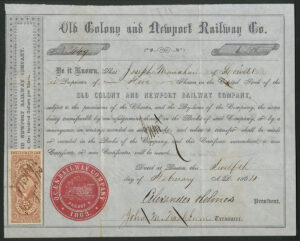 Old Colony and Newport Railway Co.
No. 669
Be it Known, That Joseph Monahan of
is Proprietor of Five Shares in the Capital Stock of the
OLD COLONY AND NEWPORT RAILWAY COMPANY,
subject to the provisions of the Charter, and the By-Laws of the Company, the same
being transferable by an assignment thereof in the Books of said Company, or by a
conveyance in writing recorded in said Books; and when a transfer shall be made
or recorded in the Books of the Company, and this Certificate surrendered, a new
Certificate or new Certificates will be issued.
Dated at Boston, the Twelfth
day of February A.D. 1864
Alexander Holmes
President.
John M. Washburn Treasurer.
RAILWAY COMPANY
1863.
NEWPORT RAILWAY COMPANY.